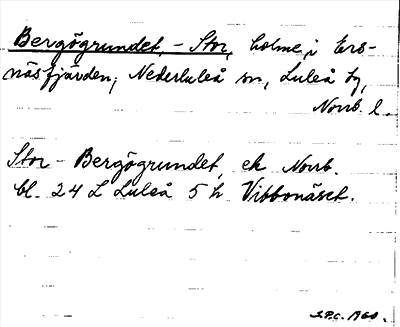 Bergögrundet, - Stor, holme, i Ers-
näsfjärden, Nederluleå sn, Luleå tg,
Norrb. l.
Stor-Bergögrundet, ek Norrb.
bl. 24 L Luleå 5 h Vibbonäset.
1960.